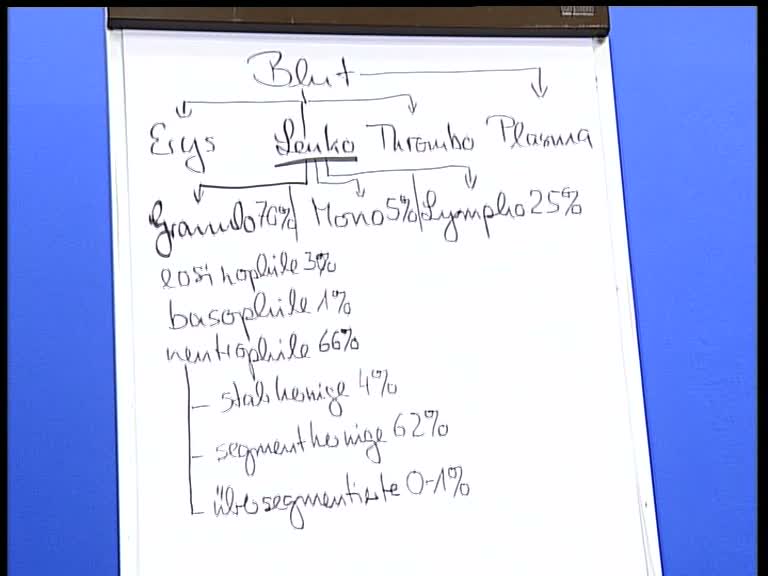 Blut
Erys Leuko Thrombo Plasma
Granulo 70% Mono 5% Lympho 25%
eosinophile 3%
basophile 1%
neutrophile 66%
stabkernige 4%
segmentkernige 62%
übersegmentierte 0-1%